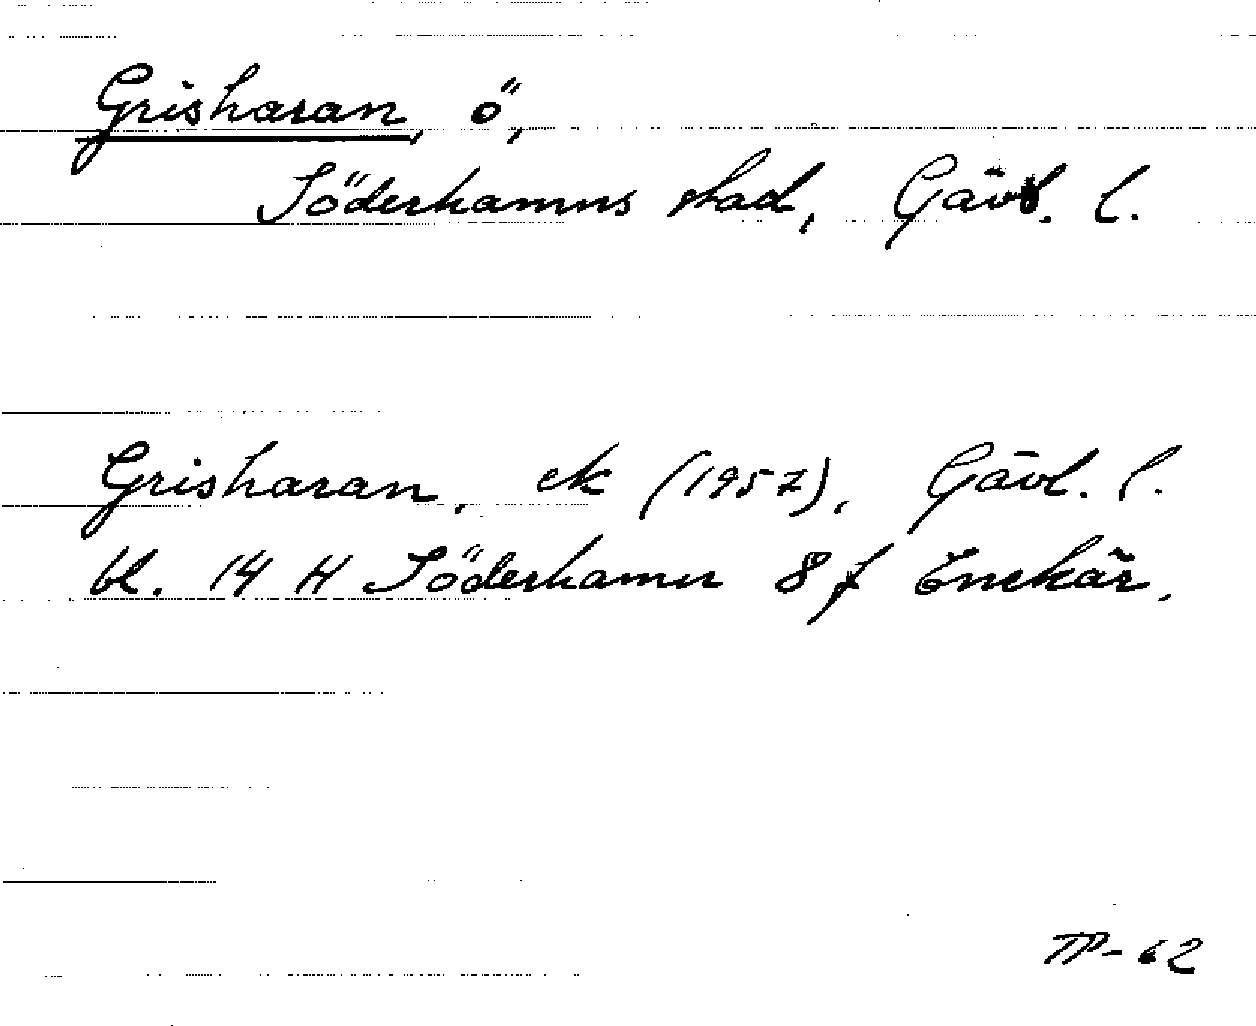 Grisharan, ö,
Söderhamns stad, Gävl. l.
Grisharan, ek (1957), Gävl. l.
bl. 14 H Söderhamn 8 f Enskär.
TP-62